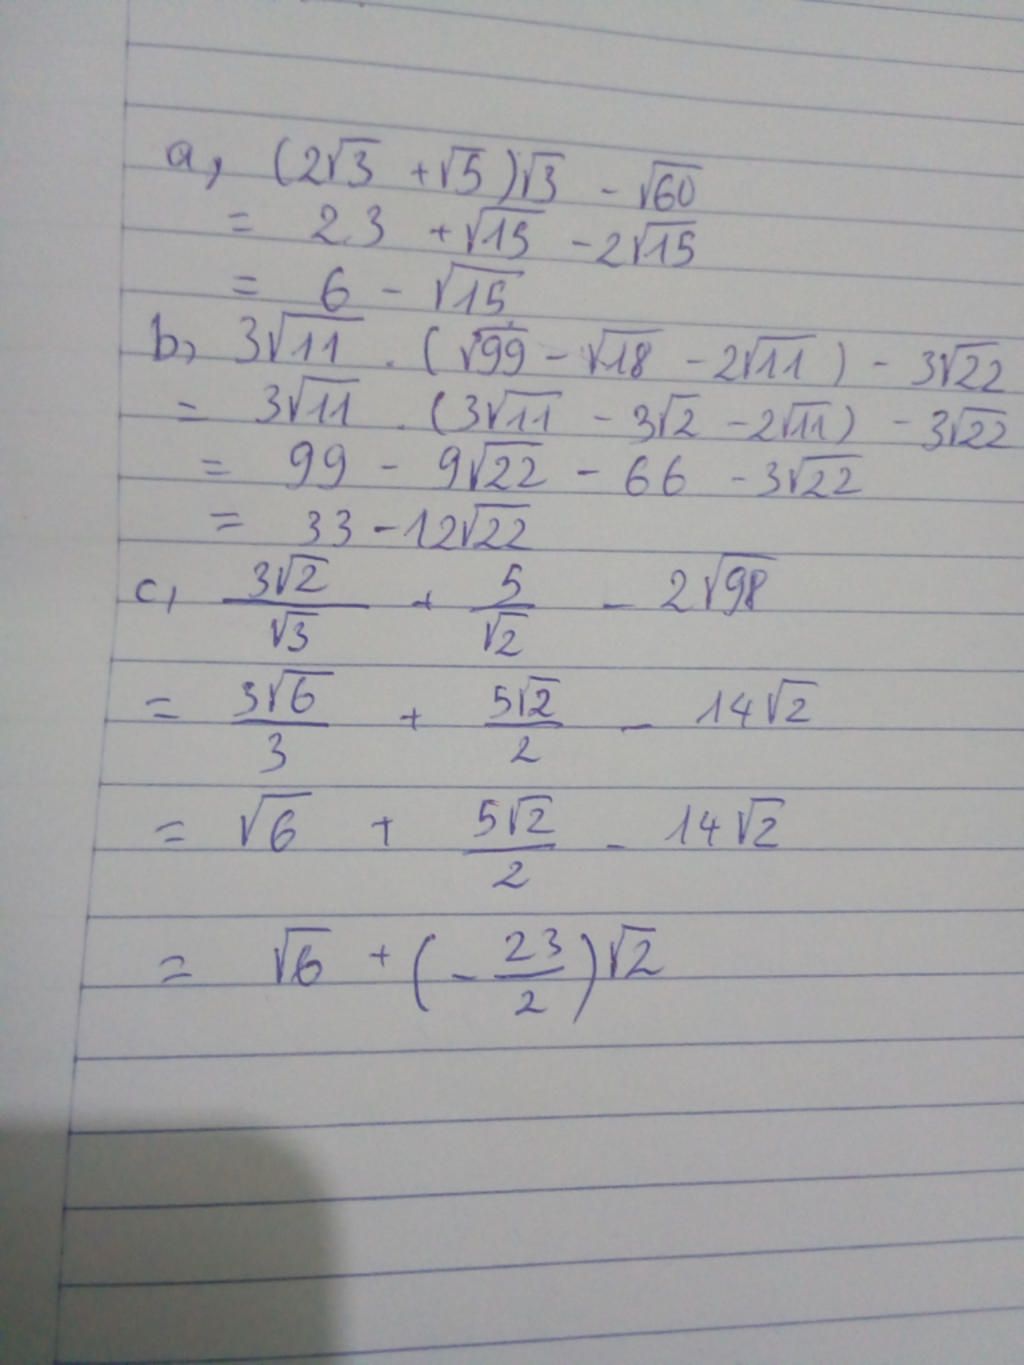 a, (2√3 + √5)√3 - √60
= 2.3 + √15 - 2√15
= 6 - √15
b, 3√11 . (√99 - √18 - 2√11) - 3√22
= 3√11 . (3√11 - 3√2 - 2√11) - 3√22
= 99 - 9√22 - 66 - 3√22
= 33 - 12√22
c, 3√2/√3 + 5/√2 - 2√98
= 3√6/3 + 5√2/2 - 14√2
= √6 + 5√2/2 - 14√2
= √6 + (- 23/2)√2